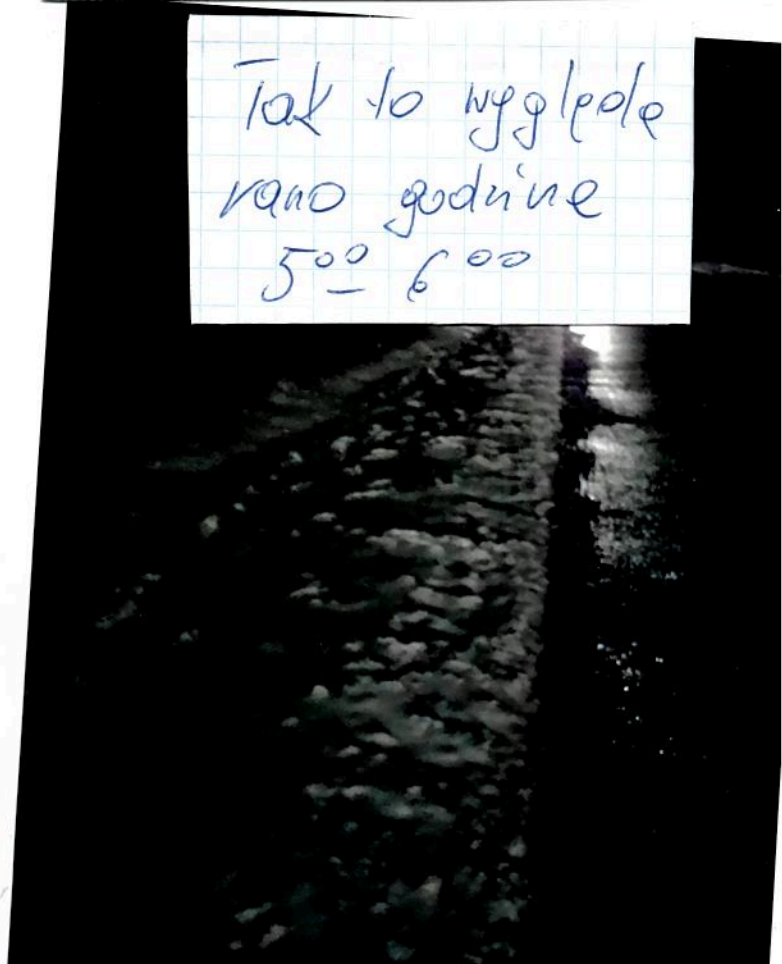 Tak to wygląda
rano godzina
5⁰⁰ 6⁰⁰